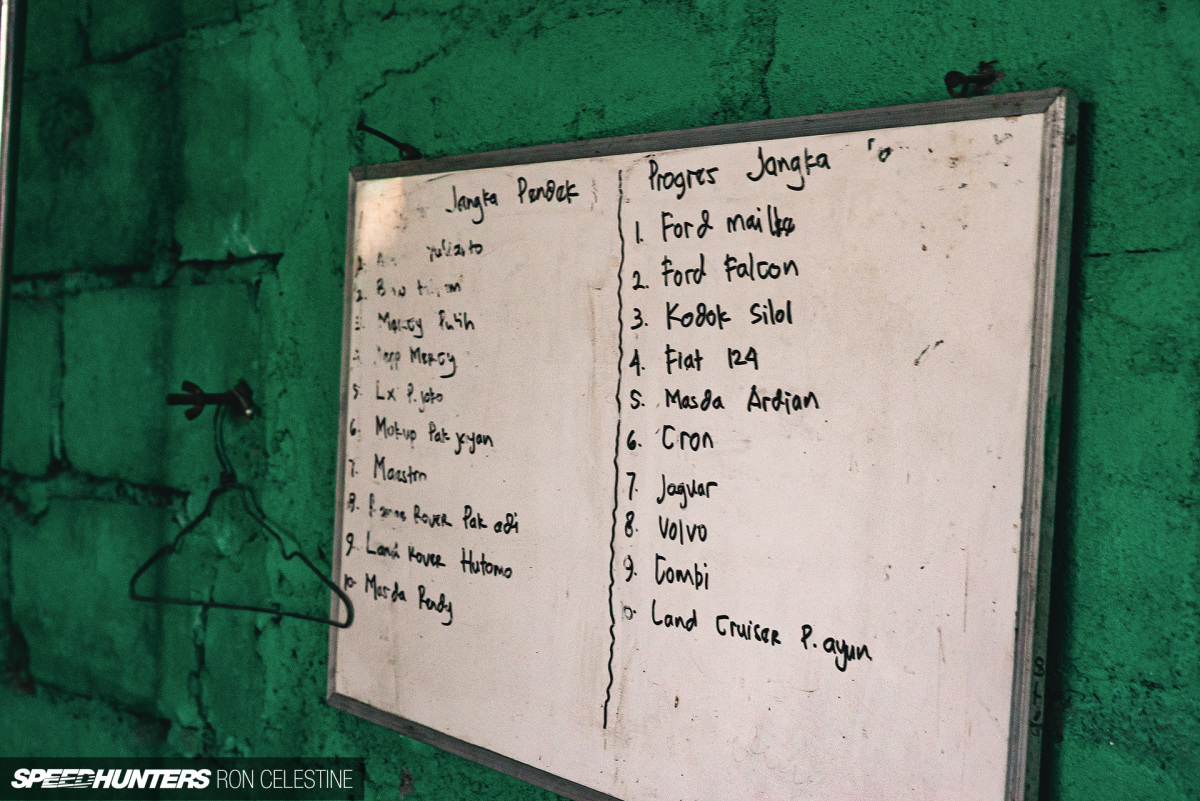 Jangka Pendek
yulianto
2.
3. Mercy Putih
Jeep Mercy
5. Lx P. joko
6. Mokup Pak yayan
7. Maestro
8. Range Rover Pak adi
9. Land Rover Hutomo
10. Masda Rendy
Progres Jangka
1. Ford
2. Ford Falcon
3. Kodok Silol
4. Fiat 124
5. Masda Ardian
6. Cron
7. Jaguar
8. Volvo
9. Combi
0. Land Cruiser P. ayun
SPEEDHUNTERS RON CELESTINE